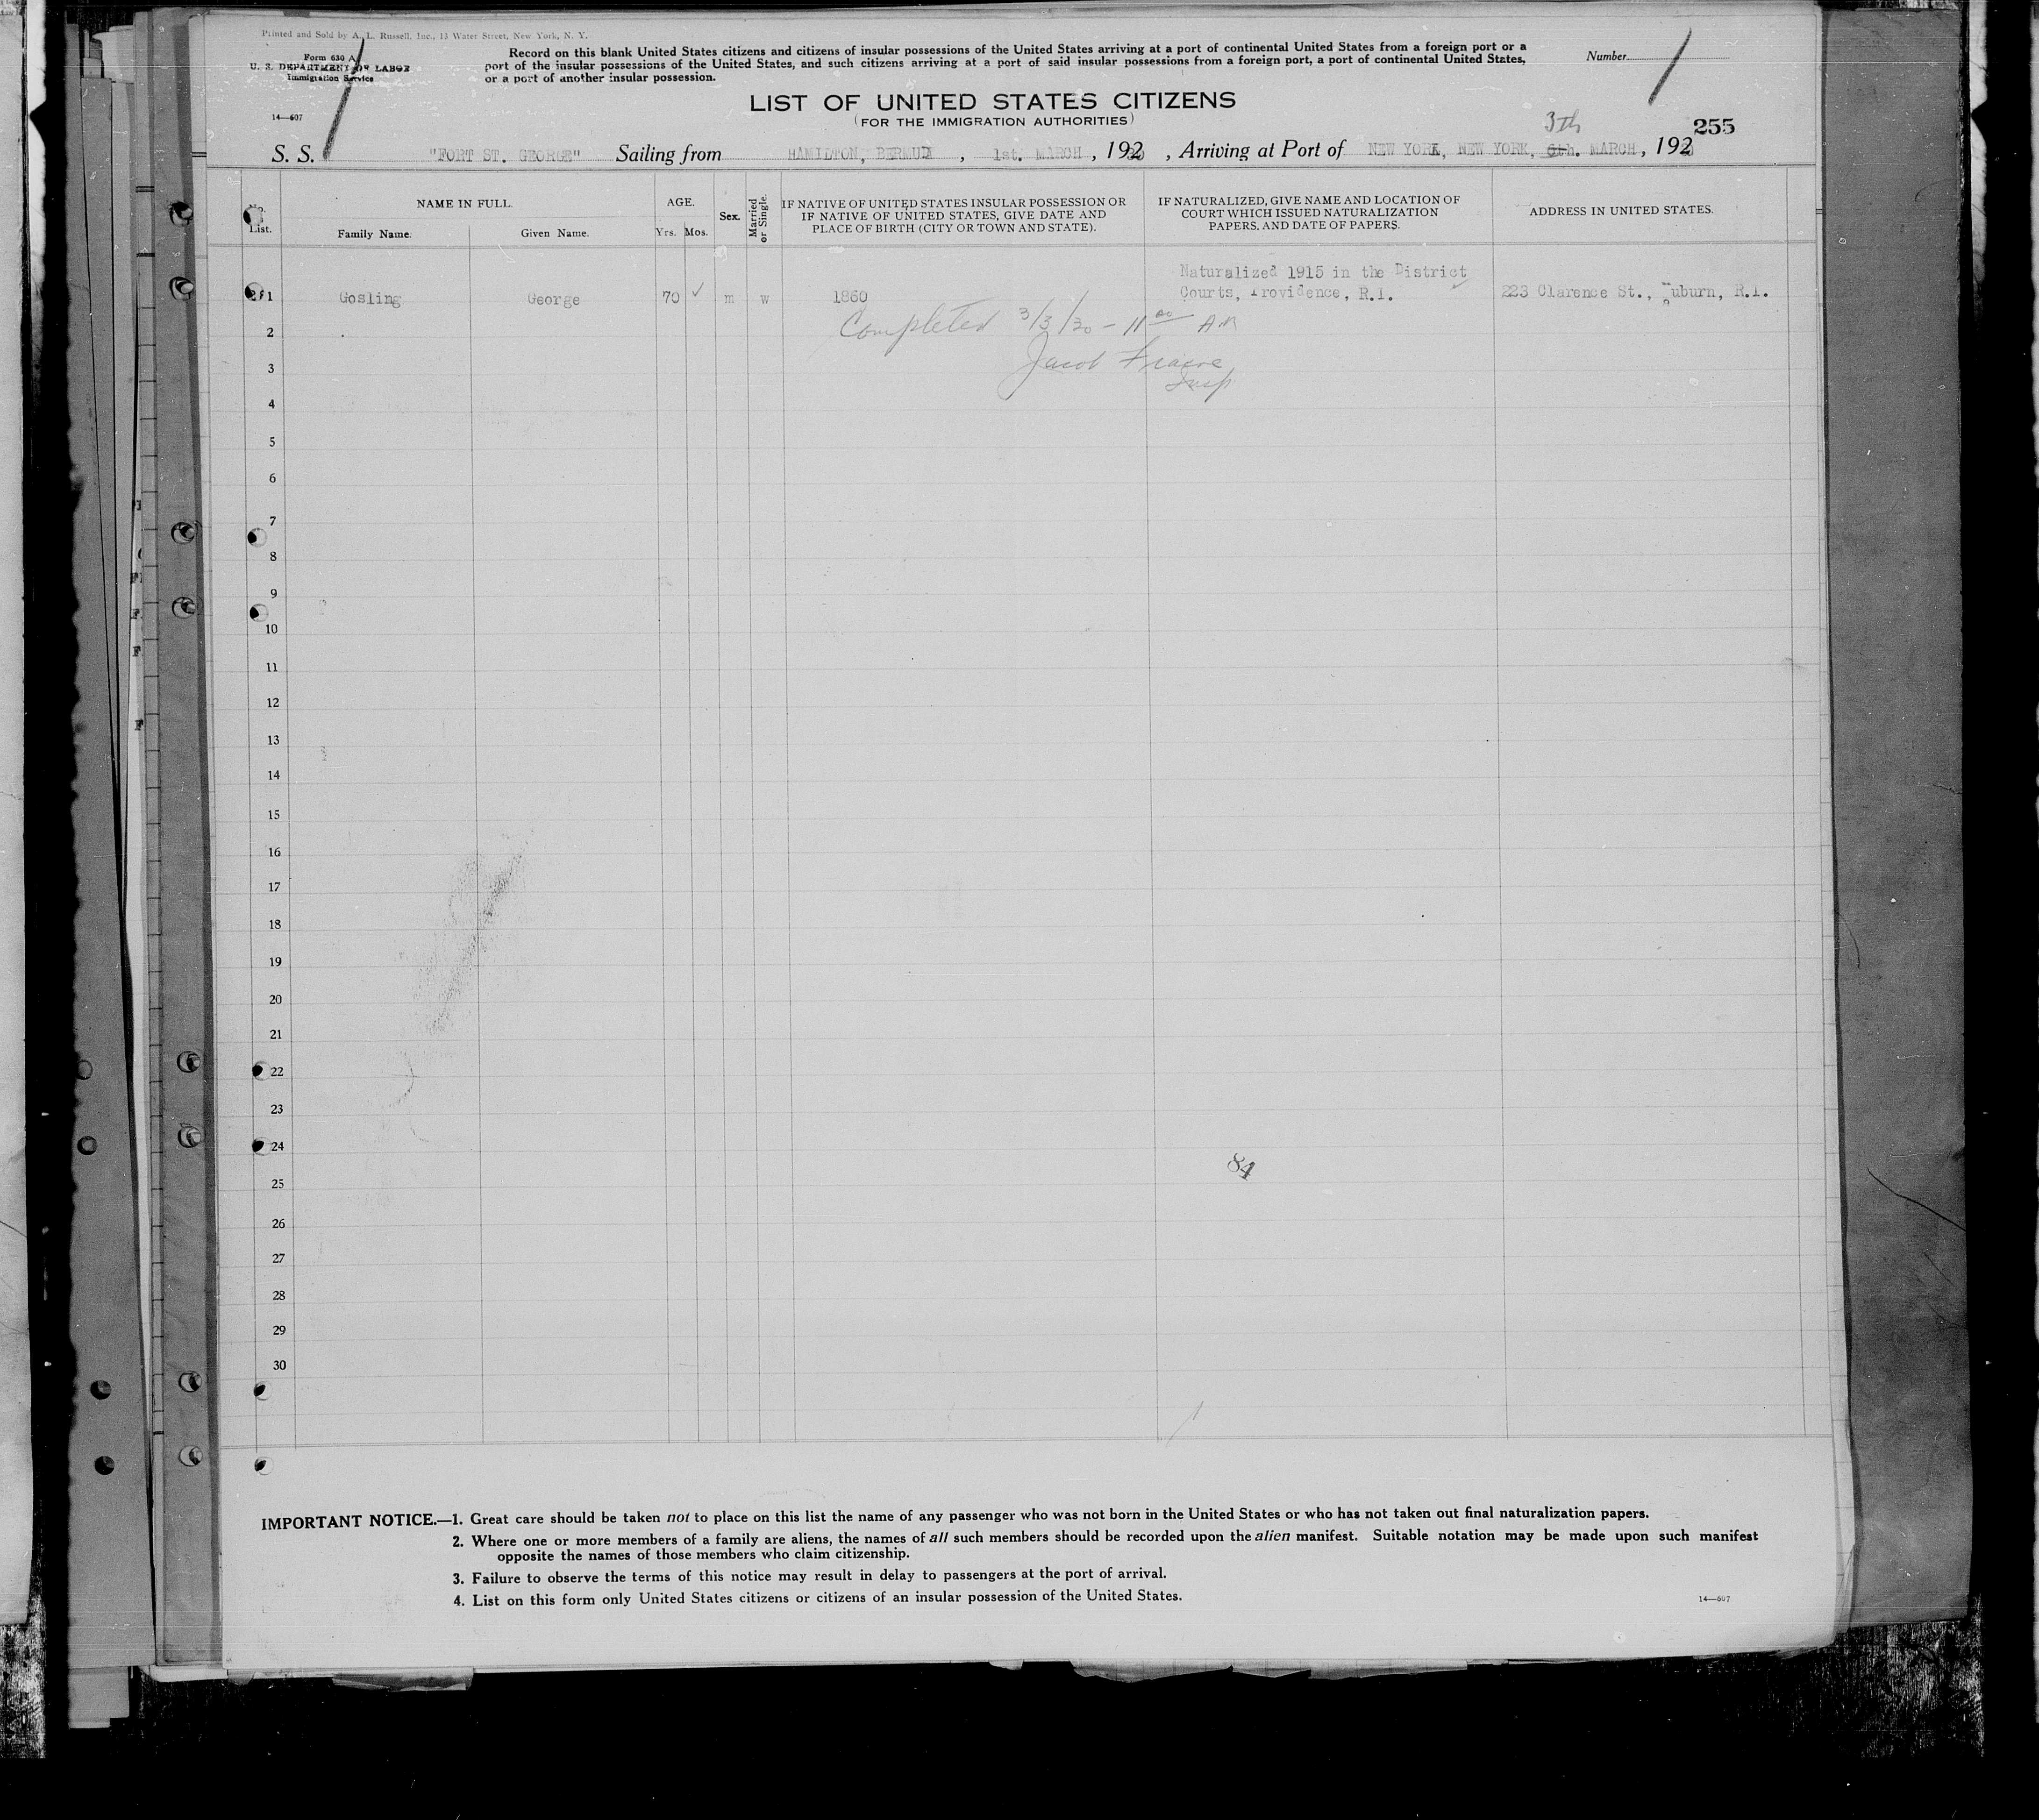 Printed and Sold by A. L. Russell, Inc., 13 Water Street, New York, N. Y.
Form 630 A
U. S. DEPARTMENT OF LABOR
Immigration Service
14—607
Record on this blank United States citizens and citizens of insular possessions of the United States arriving at a port of continental United States from a foreign port or a
port of the insular possessions of the United States, and such citizens arriving at a port of said insular possessions from a foreign port, a port of continental United States,
or a port of another insular possession.
Number 1
LIST OF UNITED STATES CITIZENS
(FOR THE IMMIGRATION AUTHORITIES)
3th
255
S. S. "FORT ST. GEORGE" Sailing from HAMILTON, , 1st. MARCH , 192 , Arriving at Port of NEW YORK, NEW YORK, 6th. MARCH, 192
No. List.
NAME IN FULL.
Family Name.
Given Name.
AGE.
Yrs. Mos.
Sex.
Married or Single.
IF NATIVE OF UNITED STATES INSULAR POSSESSION OR
IF NATIVE OF UNITED STATES, GIVE DATE AND
PLACE OF BIRTH (CITY OR TOWN AND STATE).
IF NATURALIZED, GIVE NAME AND LOCATION OF
COURT WHICH ISSUED NATURALIZATION
PAPERS, AND DATE OF PAPERS.
ADDRESS IN UNITED STATES.
Naturalized 1915 in the District
1 Gosling George 70 ✓ m w 1860 Courts, Providence, R.I. 223 Clarence St., Auburn, R.I.
Completed 3/3/30 - 11 00 AM
2
Jacob
3
Insp
4
5
6
7
8
9
10
11
12
13
14
15
16
17
18
19
20
21
22
23
24
84
25
26
27
28
29
30
IMPORTANT NOTICE.—1. Great care should be taken not to place on this list the name of any passenger who was not born in the United States or who has not taken out final naturalization papers.
2. Where one or more members of a family are aliens, the names of all such members should be recorded upon the alien manifest. Suitable notation may be made upon such manifest
opposite the names of those members who claim citizenship.
3. Failure to observe the terms of this notice may result in delay to passengers at the port of arrival.
4. List on this form only United States citizens or citizens of an insular possession of the United States.
14—607